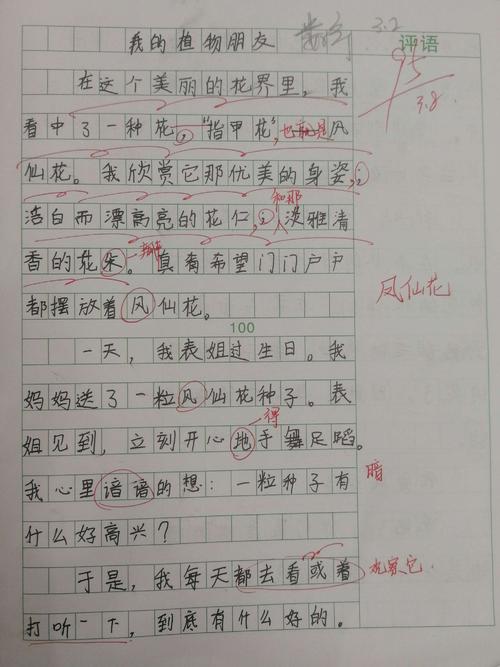 3.2
我的植物朋友
评语
95
3.8
在这个美丽的花界里，我
看中了一种花，"指甲花"，也就是风
仙花。我欣赏它那优美的身姿，
和那
洁白而漂高亮的花仁，淡雅清
香的花朱。真希望门门户户
凤仙花
都摆放着风仙花。
100
一天，我表姐过生日。我
妈妈送了一粒风仙花种子。表
得
姐见到，立刻开心地手舞足蹈。
我心里谙谙的想：一粒种子有
暗
什么好高兴？
于是，我每天都去看或着
观察它
打听一下，到底有什么好的。